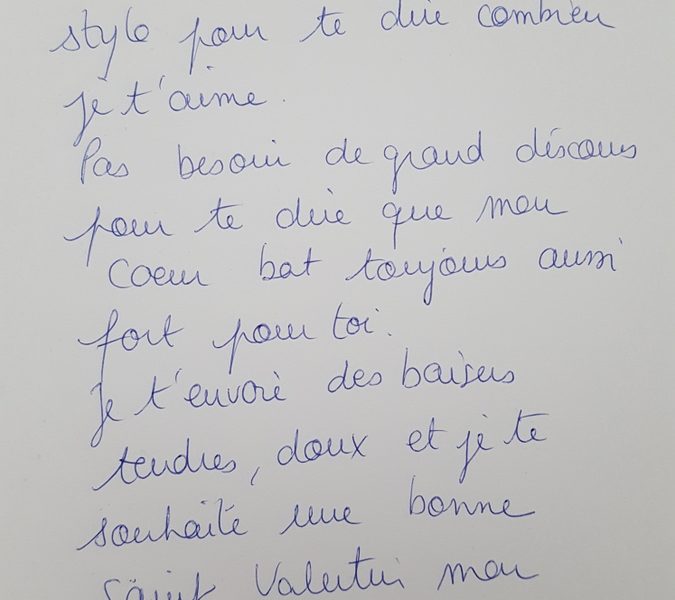 style pour te dire combien
je t'aime.
Pas besoin de grand discours
pour te dire que mon
coeur bat toujours aussi
fort pour toi.
Je t'envoie des baisers
tendres, doux et je te
souhaite une bonne
Saint Valentin mon